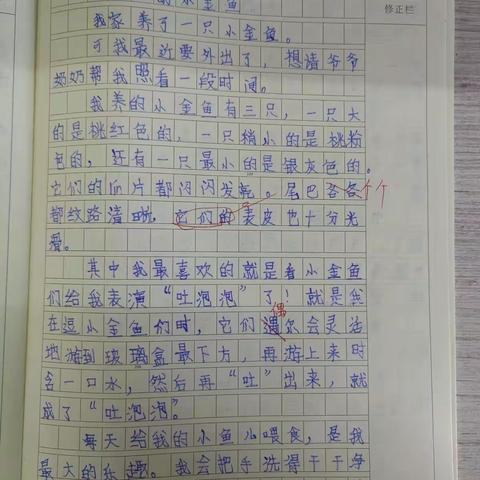 的小金鱼
修正栏
我家养了一只小金鱼。
可我最近要外出了,想请爷爷
奶奶帮我照看一段时间。
我养的小金鱼有三只,一只大
的是桃红色的,一只稍小的是桃粉
色的,还有一只最小的是银灰色的。
它们的爪片都闪闪发乾。尾巴各各个个
都纹路清晰,它们的表皮也十分光
滑。
其中我最喜欢的就是看小金鱼
们给我表演“吐泡泡”了!就是我
偶
在逗小金鱼们时,它们遇尔会灵活
地游到玻璃盒最下方,再游上来时
含一口水,然后再“吐”出来,就
成了“吐泡泡”。
每天给我的小鱼儿喂食,是我
最大的乐趣。我会把手洗得干干净